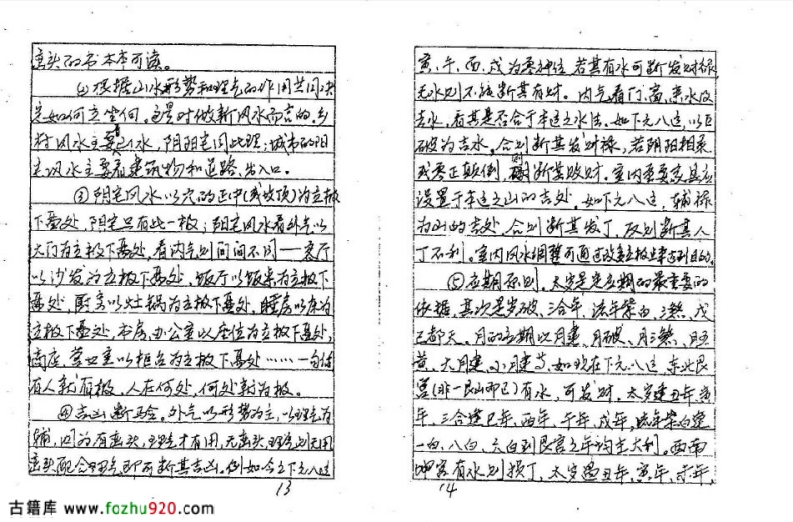 峦头的书本本可读。
②根据山水形势和理气的作用共同决
定如何立坐向，这是对做新风水而言的。乡
村风水主要看山水，阴阳宅同此理，城市的阳
宅风水主要看建筑物和道路、出入口。
③阴宅风水以穴的正中(或坟顶)为立极
下盘处，阴宅只有此一极；阳宅风水看外气以
大门为立极下盘处，看内气则间间不同——客厅
以沙发为立极下盘处，饭厅以饭桌为立极下
盘处，厨房以灶锅为立极下盘处，睡房以床为
立极下盘处，书房、办公室以座位为立极下盘处，
商店、营业室以柜台为立极下盘处……一句话
有人就有极，人在何处，何处就为极。
④吉凶断验。外气以形势为主，以理气为
辅，因为有峦头，理气才有用，无峦头理气则无用
峦头配合理气即可断其吉凶。例如今之下元八运
13
寅、午、酉、戌为零神位，若其有水可断发财禄
无水则不能断其有财。内气看门、窗、来水及
去水，看其是否合于本运之水法。如下元八运，以巨
破为吉水，合则断其发财禄，若阴阳相乘
或零正颠倒，则断其败财。室内重要家具应
设置于本运之山的吉处，如下元八运，辅禄
为山的吉处，合则断其发丁，反则断其人
丁不利。室内风水调整可通过改变立极点来达到目的。
⑤应期原则。太岁是定应期的最重要的
依据，其次是岁破、三合年、流年紫白、三煞、戊
己都天。月的应期以月建、月破、月三煞、月
黄、大月建、小月建等，如现在下元八运，东北艮
宫(非一艮山而已)有水，可发财，太岁逢丑年、寅
年，三合逢巳年、酉年、午年、戌年，流年紫白逢
一白、八白、六白到艮宫之年均主大利。西南
坤宫有水则损丁，太岁逢丑年、寅年、未年，
14
古籍库 www.fozhu920.com